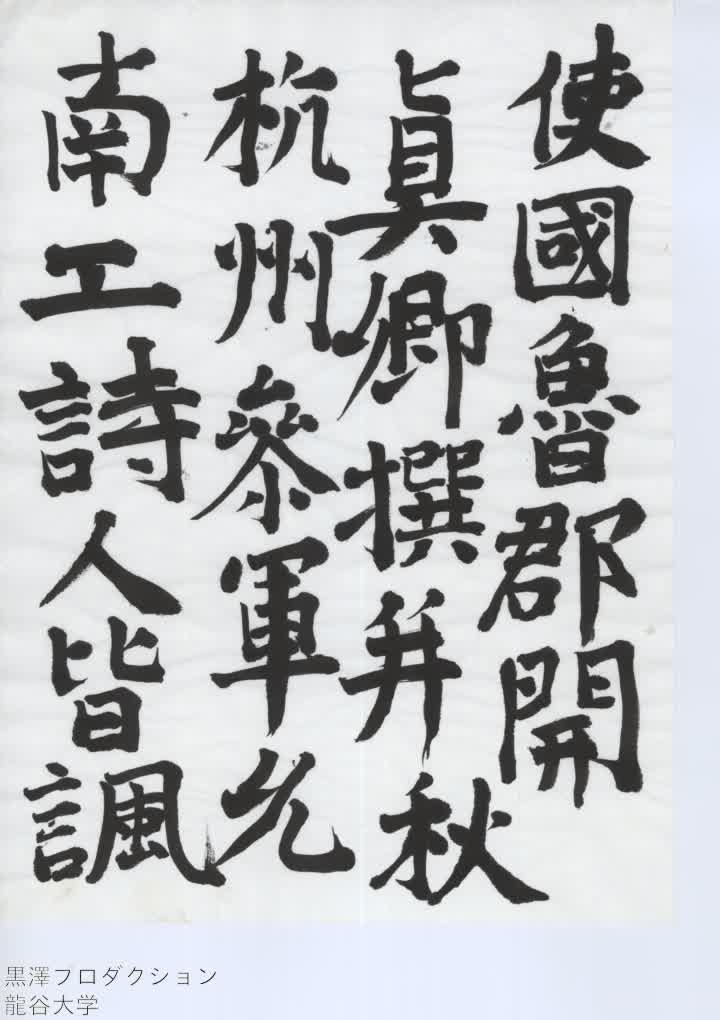 使國魯郡開
真卿撰并秋
杭州參軍允
南工詩人皆諷
黒澤プロダクション
龍谷大学